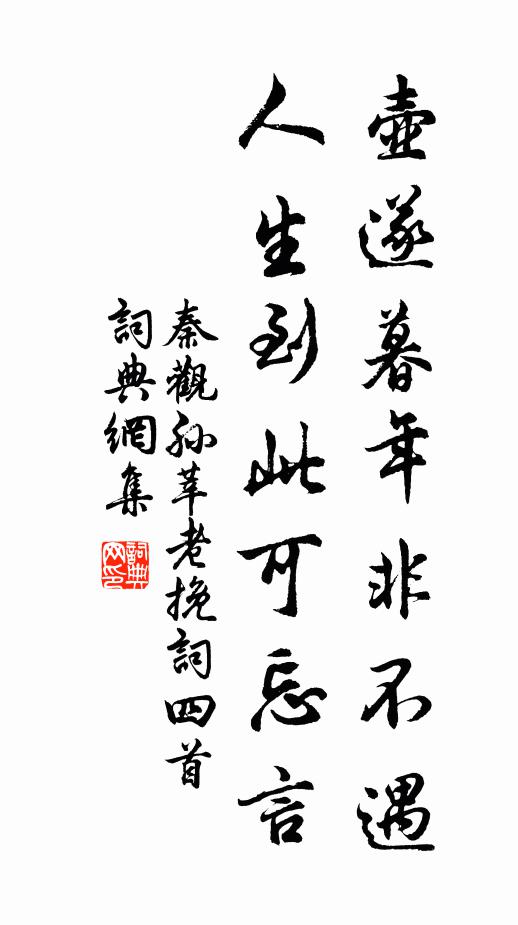 壺遂暮年非不遇
人生到此可忘言
秦觀孙莘老挽詞四首
詞典網集
詞典网印